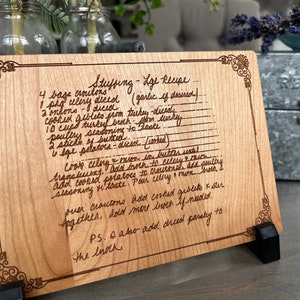 Stuffing - Lge Recipe
4 bags croutons
1 pkg celery diced (garlic if desired)
2 onions - diced
cooked giblets from turkey - diced
10 cups turkey broth - from turkey
poultry seasoning to taste
2 sticks of butter
6 lge potatoes - diced (cooked)
Cook celery & onion in butter until
transparent. Add broth to celery & onion
add cooked potatoes to
seasoning to taste. Pour celery & onion broth
over croutons add cooked giblets & stir
together. Add more broth if needed.
P.S. I also add dried parsley to
the broth